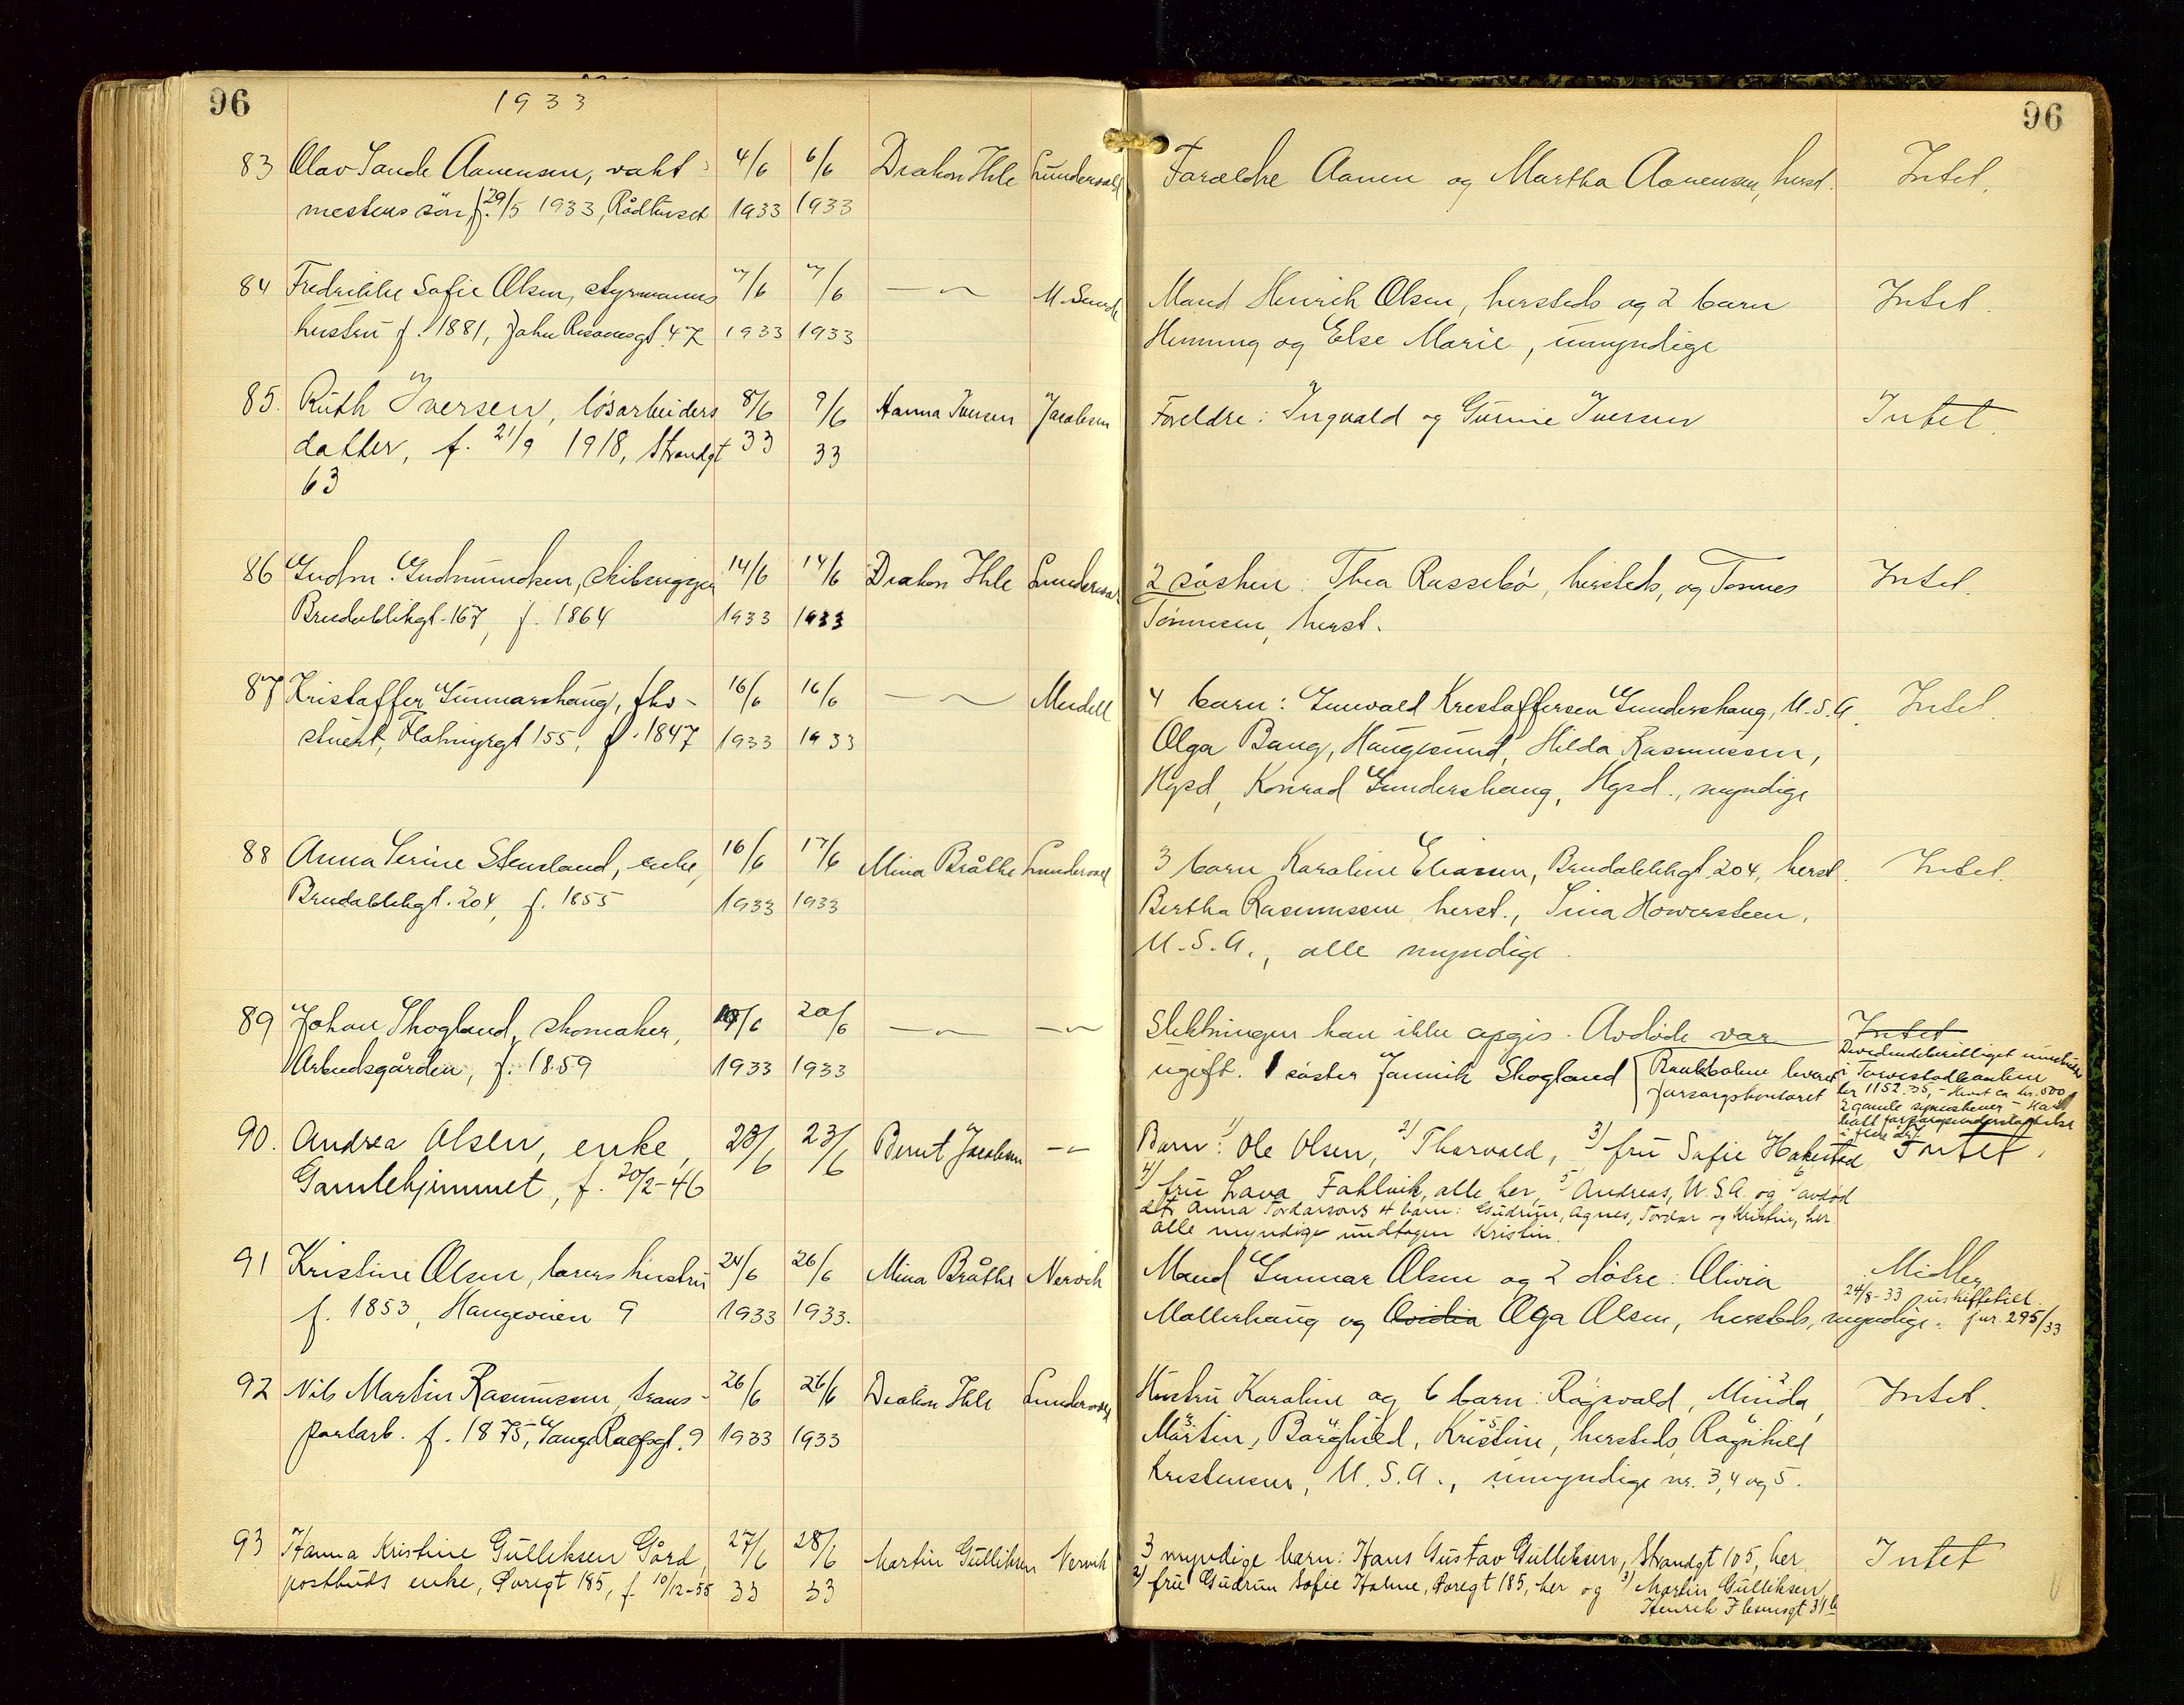 96
1933
96
83 Olav Sande Aanensen, vakt- 4/6 6/6 Diakon Ihle Gundersen Forældre Aanen og Martha Aanensen, herst. Intet.
mesters søn, f. 29/5 1933, Rådhuset 1933 1933
84 Fredrikke Sofie Olsen, styrmanns 7/6 7/6 — " — M. Sund Mand Henrik Olsen, hersteds og 2 barn Intet.
hustru f. 1881, John 47 1933 1933 Henning og Else Marie, umyndige
85. Ruth Iversen, løsarbeiders 8/6 9/6 Hanna Iversen Jacobsen Foreldre: Ingvald og Gurine Iversen Intet.
datter, f. 21/9 1918, Strandgt 33 33
63
86 Gudm. Gudmundsen, skibsrigger 14/6 14/6 Diakon Ihle 2 søsken: Thea Rassebø, hersteds, og Tønnes Intet.
Breidablikgt. 167, f. 1864 1933 1933 Tønnesen, herst.
87 Kristoffer Gunnarshaug, fhv- 16/6 16/6 — " — Mendell 4 barn: Gunvald Kristoffersen Gundershaug, U.S.A. Intet.
Flotmyrgt 155, f. 1847 1933 1933 Olga Bang, Haugesund, Hilda Rasmussen,
Hgsd, Konrad Gundershaug, Hgsd., myndige
88 Anna Serine Stensland, enke, 16/6 17/6 Mina Bråthe 3 barn Karoline Eliassen, Breidablikgt 204, herst. Intet.
Breidablikgt. 204, f. 1855 1933 1933 Bertha Rasmussen herst., Sina Howersteen,
U.S.A., alle myndige.
89 Johan Skogland, skomaker, 19/6 20/6 — " — — " — Slektninger kan ikke opgis. Avdøde var Intet
Arbeidsgården, f. 1859 1933 1933 ugift. 1 søster Jannik Skogland Bankbokene levert
forsorgskontoret
i Torvestadbanken
kr 1152.35,- kr. 500
2 gamle symaskiner - Har
hatt forsorgsunderstøttelse
i flere år.
90. Andrea Olsen, enke, 23/6 23/6 Bernt Jacobsen — " — Barn: 1) Ole Olsen, 2) Thorvald, 3) fru Sofie Hakestad Intet.
Gamlehjemmet, f. 20/2-46 4) fru Lava Fahlvik, alle her, 5) Andreas, U.S.A. og 6 avdød
dtr Anna Tordarsons 4 barn: Gudrun, Agnes, Tordar og Kristin, her.
alle myndige undtagen Kristin.
91 Kristine Olsen, hustru 24/6 26/6 Mina Bråthe Nervik Mand Gunnar Olsen og 2 døtre: Olivia Midler
24/8-33 uskiftetill.
f. 1853, Haugeveien 9 1933 1933. Møllerhaug og Ovidia Olga Olsen, hersteds, myndige. jnr. 295/33
92 Nils Martin Rasmussen, trans- 26/6 26/6 Diakon Ihle Hustru Karoline og 6 barn: Ragnvald, Minda, Intet.
portarb. f. 1875, 9 1933 1933 Martin, Borghild, Kristine, hersteds, Ragnhild
Kristensen, U.S.A., umyndige nr. 3, 4 og 5.
93 Hanna Kristine Gulliksen Gård, 27/6 28/6 Martin Gulliksen Nervik 3 myndige barn: Hans Gustav Gulliksen, Strandgt 105, her Intet
postbuds enke, Øvregt 185, f. 10/12-55 33 33 2) fru Gudrun Sofie Holme, Øvregt 185, her og 3) Martin Gulliksen,
Henrik 31 b